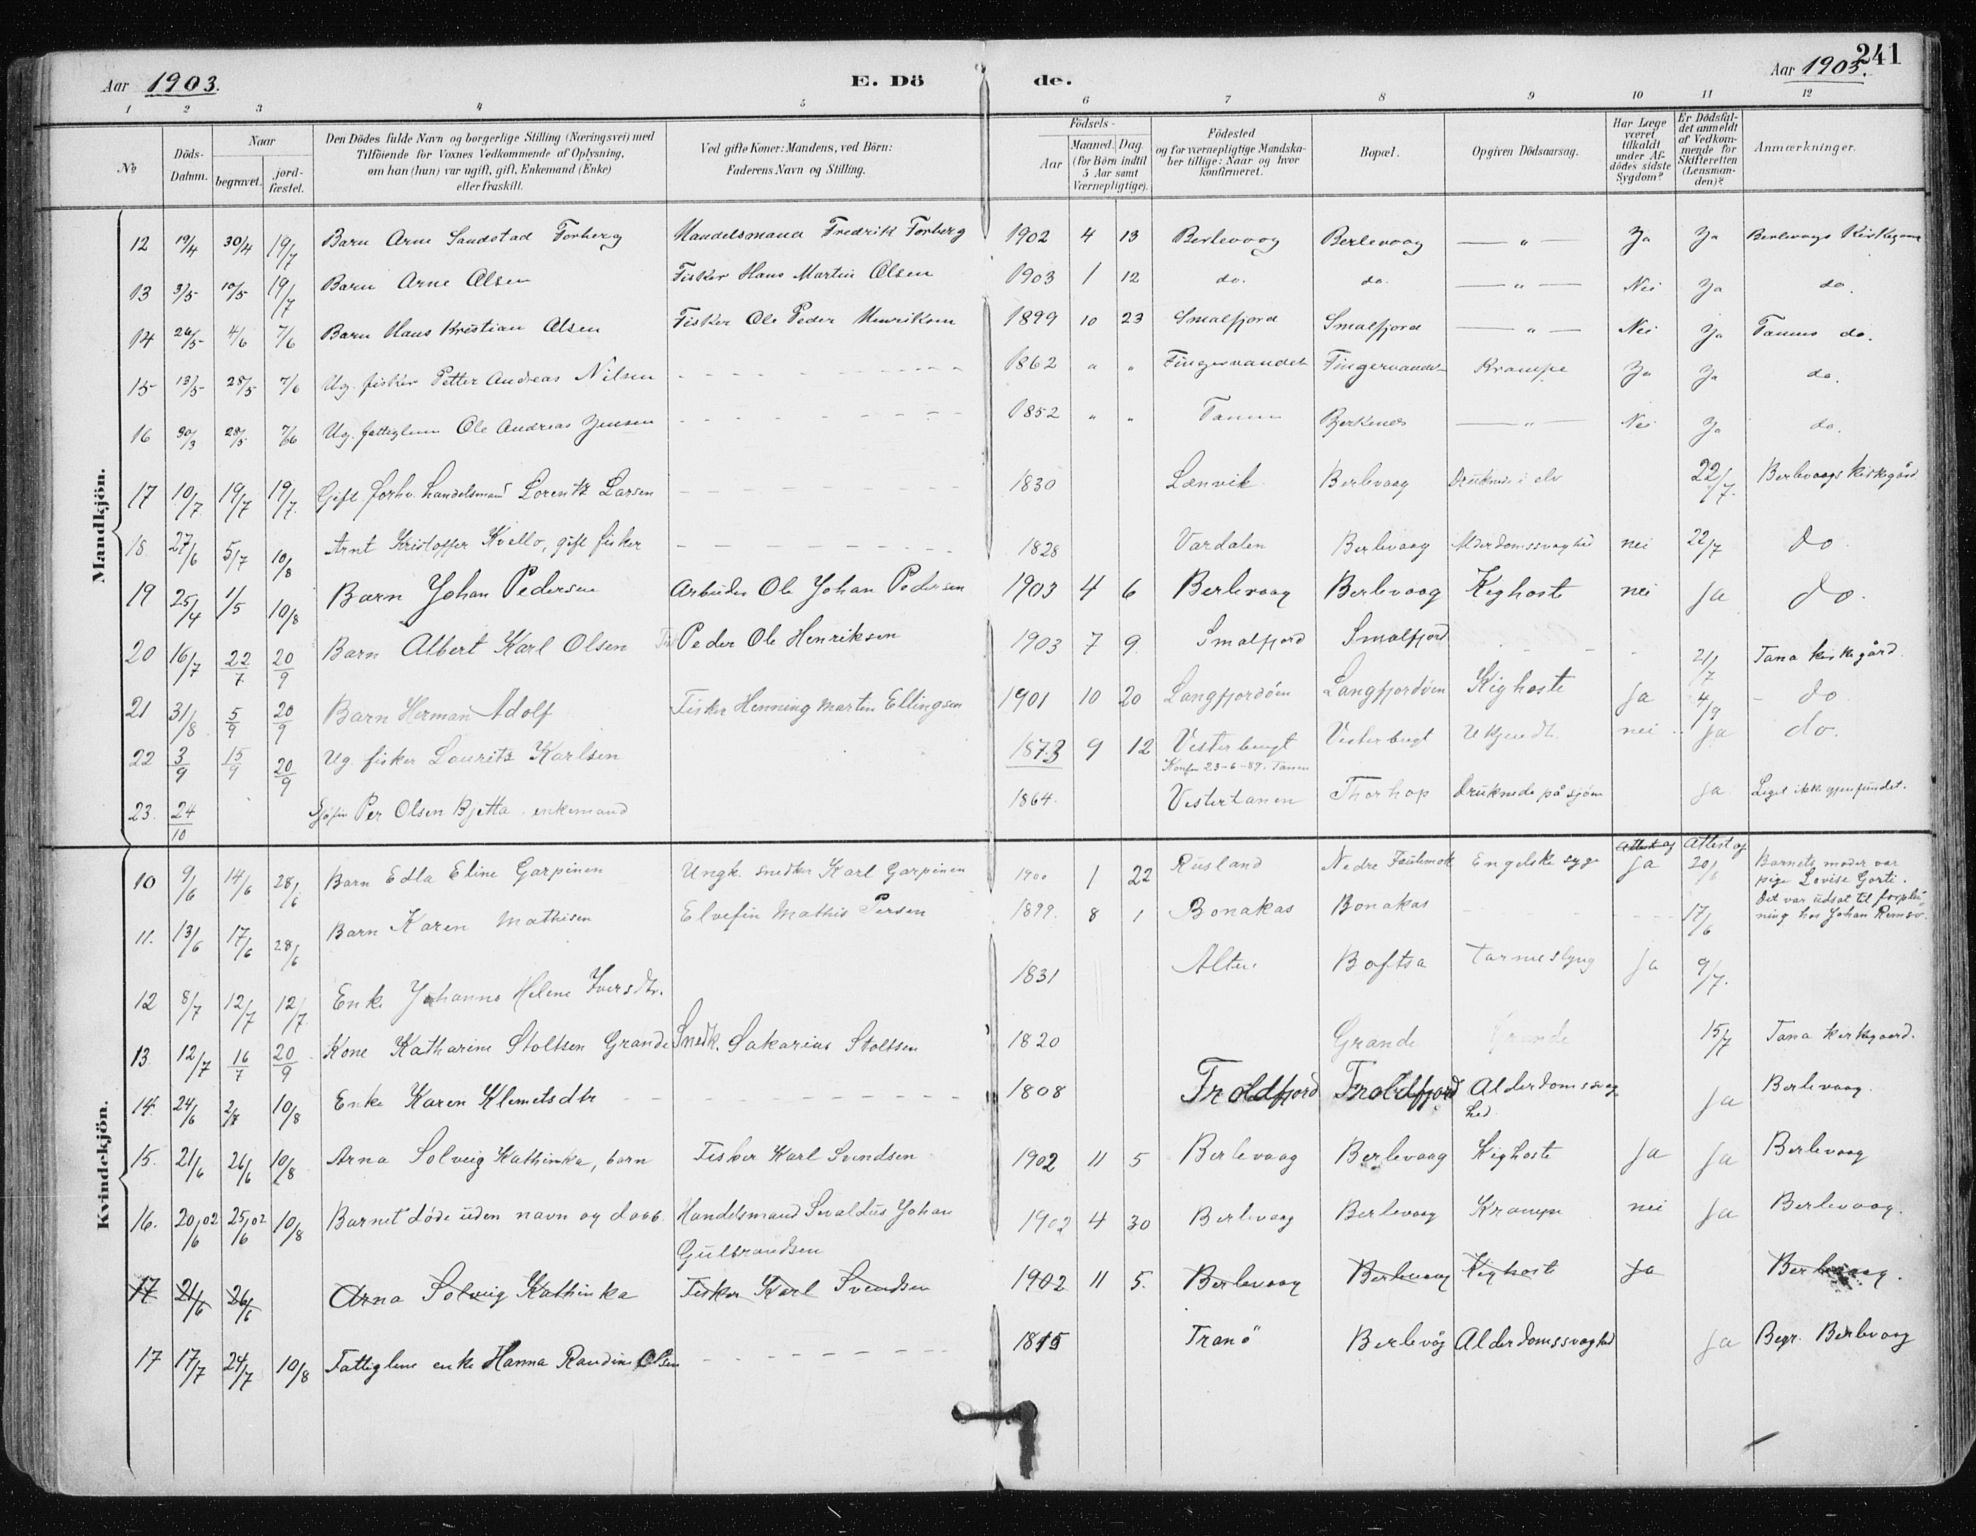 241
Aar 1903. E. Döde. Aar 1903.
1 2 3 4 5 6 7 8 9 10 11 12
No
Döds-Datum.
Naar
begravet.
jordfæstet.
Den Dödes fulde Navn og borgerlige Stilling (Næringsvei) med
Tilföiende for Voxnes Vedkommende af Oplysning,
om han (hun) var ugift, gift, Enkemand (Enke)
eller fraskilt.
Ved gifte Koner: Mandens, ved Börn:
Faderens Navn og Stilling.
Födsels-
Aar
Maaned. Dag.
(for Börn indtil
5 Aar samt
Værnepligtige).
Födested
og for værnepligtige Mandskaber tillige: Naar og hvor
konfirmeret.
Bopæl.
Opgiven Dödsaarsag.
Har Læge
været
tilkaldt
under Afdödes sidste
Sygdom?
Er Dödsfaldet anmeldt
af Vedkommende for
Skifteretten
(Lensmanden)?
Anmærkninger.
Mandkjön.
12 19/4 30/4 19/7 Barn Arne Sandstad Forberg Handelsmand Fredrik Forberg 1902 4 13 Berlevaag Berlevaag — „ — Ja Ja Berlevaags Kirkegaard
13 3/5 10/5 19/7 Barn Arne Olsen Fisker Hans Martin Olsen 1903 1 12 do. do. — „ — Nei Ja do.
14 26/5 4/6 7/6 Barn Hans Kristian Olsen Fisker Ole Peder Henriksen 1899 10 23 Smalfjord Smalfjord — „ — Nei Ja Tanens do.
15 13/5 28/5 7/6 Ug. fisker Petter Andreas Nilsen 1862 „ „ Fingervandet Fingervandet Krampe Ja Ja do.
16 30/3 28/5 7/6 Ug. fattiglem Ole Andreas Jensen 1852 „ „ Tanen Berkenes — „ — Nei Ja do.
17 10/7 19/7 19/7 Gift forhv. handelsmand Lorentz Larsen 1830 Lænvik Berlevaag Druknede i elv 22/7. Berlevaags Kirkegård
18. 27/6 5/7 10/8 Arnt Kristoffer Kvello, gift fisker 1828 Værdalen Berlevaag Alderdomssvaghed nei 22/7 do
19 25/4 1/5 10/8 Barn Johan Pedersen Arbeider Ole Johan Pedersen 1903 4 6 Berlevaag Berlevaag Kighoste nei Ja do.
20 16/7 22/7. 20/9 Barn Albert Karl Olsen Peder Ole Henriksen 1903 7 9. Smalfjord Smalfjord 21/7 Tana kirkegård.
21 31/8 5/9 20/9 Barn Herman Adolf Fisker Henning Martin Ellingsen 1901 10 20 Langfjordøen Langfjordøen Kighoste Ja 4/9 do
22 3/9 15/9 20/9 Ug. fisker Laurits Karlsen 1873 9 12 Vesterbugt Vesterbugt Ukjendt. nei Ja do.
Konf. 23-6-89. Tanen
23. 24/10 Sjøfin Per Olsen Bjetta enkemand 1864. Vestertanen Thorhop Druknede på sjøen Ja Liget ikke gjenfundet.
Kvindekjön.
10 9/6 14/6 28/6 Barn Edla Eline Garpinen Ungk. snedker Karl Garpinen 1900 1 22 Rusland Nedre Engelske syge Attest af Ja Attest af 20/6 Barnets moder var
pige Lovise Gorti.
Det var udsat til forpleining hos Johan
11. 13/6 17/6 28/6 Barn Karen Mathisen Elvefin Mathis Persen 1899. 8 1 Bonakas Bonakas 17/6
12 8/7 12/7 12/7 Enke Johanne Helene Iversdtr. 1831 Alten Boftsa Tarmeslyng Ja 9/7.
13 12/7 16/7 20/9 Kone Katharine Stoltsen Grande Snedk. Sakarias Stoltsen 1820 Grande Grande 15/7 Tana kirkegaard.
14 24/6 2/7 10/8 Enke Karen Klemetsdtr 1808 Troldfjord Troldfjord Alderdomssvaghed Ja Berlevaag
15. 21/6 26/6 10/8 Arna Solveig Kathinka, barn Fisker Karl Svendsen 1902 11 5 Berlevaag Berlevaag Kighoste Ja Ja Berlevaag
16. 20/6 02 25/6 02 10/8 Barnet døde uden navn og daab. Handelsmand Svaldus Johan
Gulbrandsen 1902 4 30 Berlevaag Berlevaag Krampe nei Ja Berlevaag.
17 21/6 26/6 Arna Solveig Kathinka Fisker Karl Svendsen 1902 11 5. Berlevaag Berlevaag Kighoste Ja Berlevaag.
17 17/7 24/7 10/8 Fattiglem enke Hanna Randine Olsen 1815 Tranö Berlevåg Alderdomssvaghed Ja Begr. Berlevaag